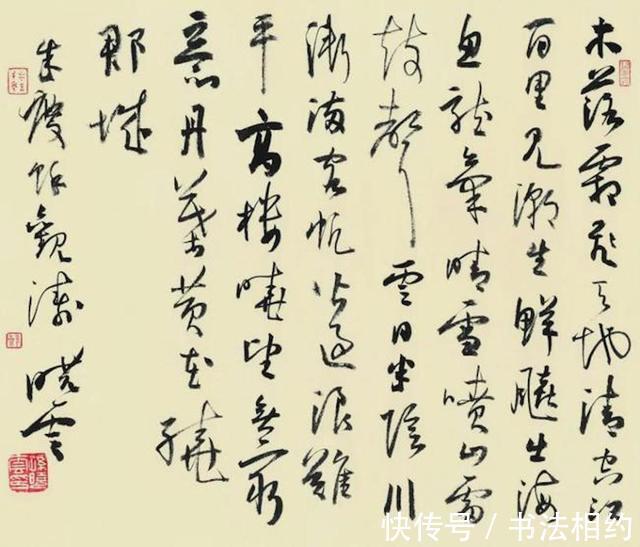 木落霜飛天地清空江
百里見潮生鮮飈出海
魚龍氣晴雪噴山雷
鼓聲雲日半陰川
漸滿客帆皆過浪難
平高樓曉望無窮
意丹葉黃花繞
郡城
朱慶餘觀濤 曉雲
快传号 / 书法相约